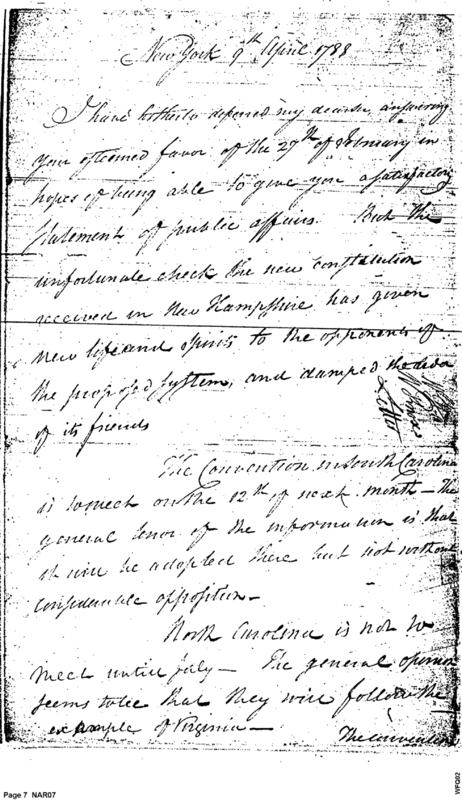 New York 9th April 1788
I have hitherto deferred my dearest, answering
your esteemed favor of the 29th of February in
hopes of being able to give you a satisfactory
Statement of public affairs. But the
unfortunate check the new constitution
received in New Hampshire has given
new life and spirits to the opponents of
the proposed system, and damped the
of its friends
The Convention in South Carolina
is to meet on the 12th of next month — The
general tenor of the information is that
it will be adopted there but not without
considerable opposition —
North Carolina is not to
meet until July — The general opinion
seems to be that they will follow the
example of Virginia —
The convention
Page 7 NAR07
WFQ02